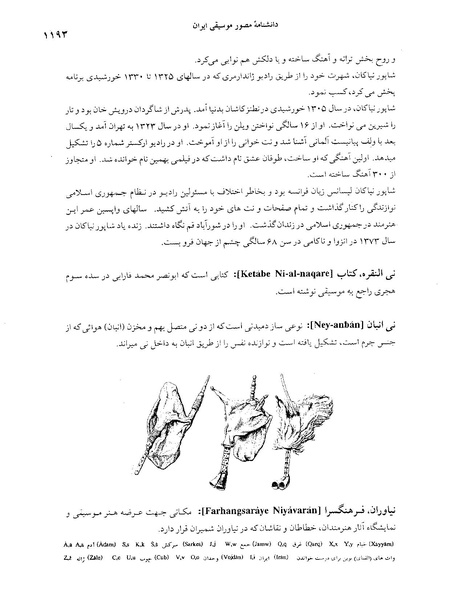 دانشنامهٔ مصور موسیقی ایران
۱۱۹۳
و روح بخش ترانه و آهنگ ساخته و با دلکش هم نوایی می‌کرد.
شاپور نیاکان، شهرت خود را از طریق رادیو ژاندارمری که در سالهای ۱۳۲۵ تا ۱۳۳۰ خورشیدی برنامه
پخش می‌کرد، کسب نمود.
شاپور نیاکان، در سال ۱۳۰۵ خورشیدی در نطنز کاشان بدنیا آمد. پدرش از شاگردان درویش خان بود و تار
را شیرین می نواخت. او از ۱۶ سالگی نواختن ویلن را آغاز نمود. او در سال ۱۳۲۳ به تهران آمد و یکسال
بعد با ولف پیانیست آلمانی آشنا شد و نت خوانی را از او آموخت. او در رادیو ارکستر شماره ۵ را تشکیل
میدهد. اولین آهنگی که او ساخت، طوفان عشق نام داشت که در فیلمی بهمین نام خوانده شد. او متجاوز
از ۳۰۰ آهنگ ساخته است.
شاپور نیاکان لیسانس زبان فرانسه بود و بخاطر اختلاف با مسئولین رادیو در نظام جمهوری اسلامی
نوازندگی را کنار گذاشت و تمام صفحات و نت های خود را به آتش کشید. سالهای واپسین عمر این
هنرمند در جمهوری اسلامی در زندان گذشت. او را در شورآباد قم نگاه داشتند. زنده یاد شاپور نیاکان در
سال ۱۳۷۳ در انزوا و ناکامی در سن ۶۸ سالگی چشم از جهان فرو بست.
نی النقره، کتاب [Ketábe Ni-al-naqare]: کتابی است که ابونصر محمد فارابی در سده سوم
هجری راجع به موسیقی نوشته است.
نی انبان [Ney-anbán]: نوعی ساز دمیدنی است که از دو نی متصل بهم و مخزن (انبان) هوائی که از
جنس چرم است، تشکیل یافته است و نوازنده نفس را از طریق انبان به داخل نی میراند.
نیاوران، فرهنگسرا [Farhangsaráye Niyávarán]: مکانی جهت عرضه هنر موسیقی و
نمایشگاه آثار هنرمندان، خطاطان و نقاشان که در نیاوران شمیران قرار دارد.
A,a Á,á آدم (Ádam) S,s K,k Š,š سرکش (Sarkeš) J,j W,w جمع (Jamw) Q,q غرق (Qarq) X,x Y,y خیام (Xayyám)
Z,ž ژاله (Žále) C,c U,u چوب (Cub) V,v O,o وجدان (Vojdán) I,i ایران (Irán) وات های (الفبای) نوین برای درست خواندن